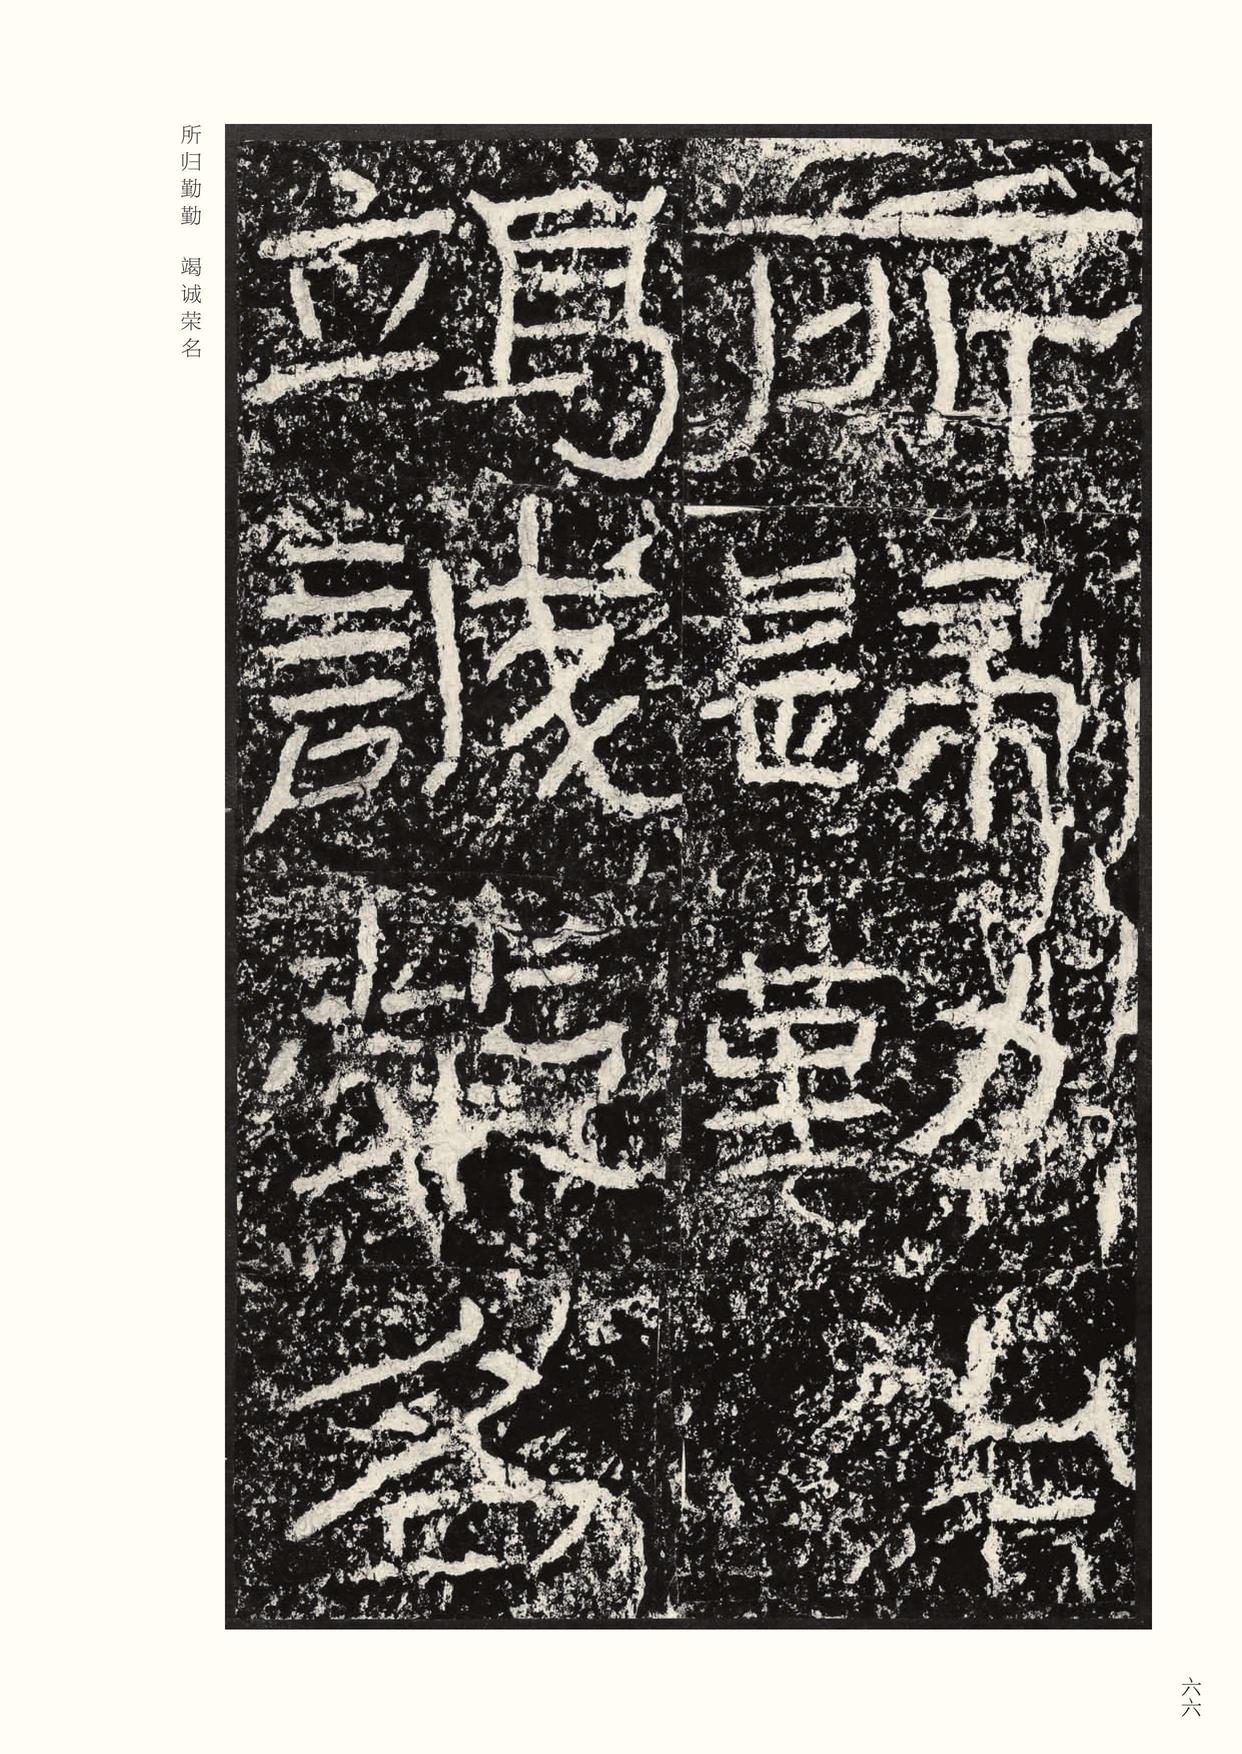 所歸勤
竭誠榮名
所归勤勤　竭诚荣名
六六